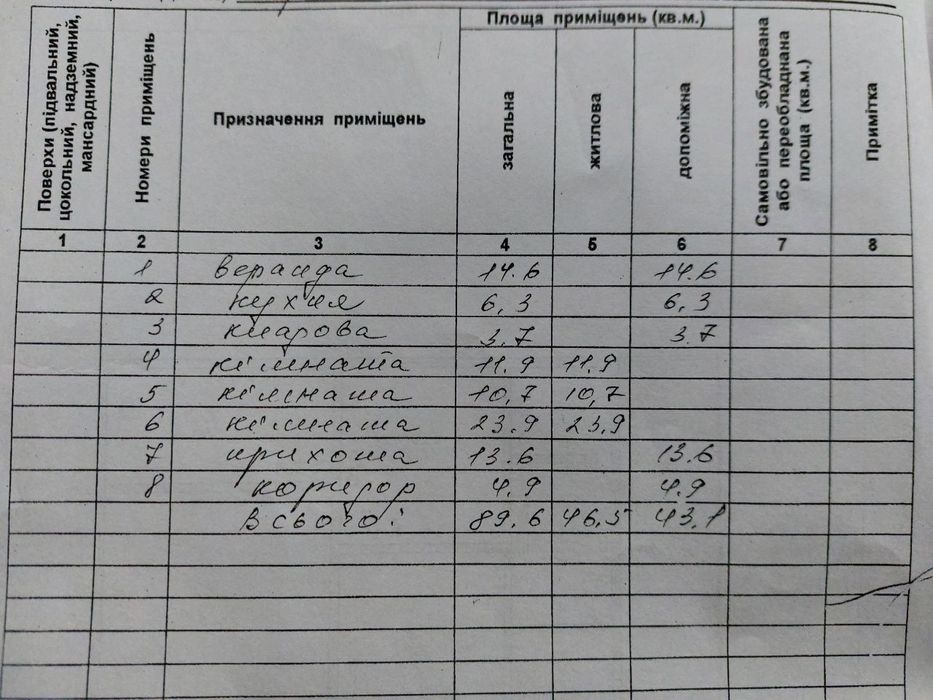 Поверхи (підвальний, цокольний, надземний, мансардний)
Номери приміщень
Призначення приміщень
Площа приміщень (кв.м.)
загальна
житлова
допоміжна
Самовільно збудована або переобладнана площа (кв.м.)
Примітка
1 2 3 4 5 6 7 8
1 веранда 14.6 14.6
2 кухня 6,3 6,3
3 3.7 3.7
4 кімната 11.9 11.9
5 кімната 10,7 10,7
6 кімната 23.9 23,9
7 13.6 13.6
8 коридор 4.9 4.9
Всього: 89,6 46,5 43,1